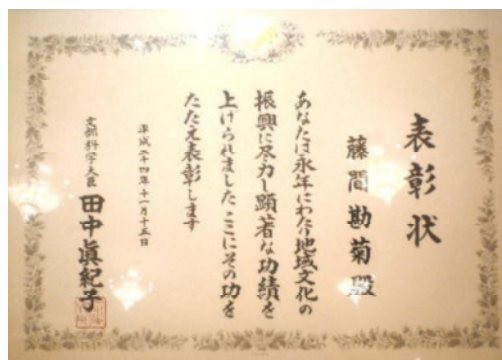 表彰状
藤間勘菊殿
あなたは永年にわたり地域文化の
振興に尽力し顕著な功績を
上げられました ここにその功を
たたえ表彰します
平成二十四年十一月十五日
文部科学大臣 田中眞紀子